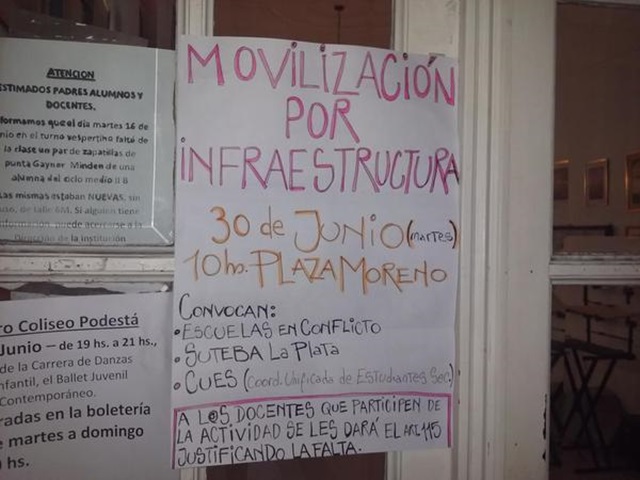 ATENCION
ESTIMADOS PADRES ALUMNOS Y
DOCENTES.
que el día martes 16 de
en el turno vespertino faltó de
la clase un par de zapatillas de
punta Gaynor Minden de una
alumna del ciclo medio II B
Las mismas estaban NUEVAS, sin
de talle 6M. Si alguien tiene
puede acercarse a la
Dirección de la institución
MOVILIZACIÓN
POR
INFRAESTRUCTURA
30 de JUNIO (martes)
10hs. PLAZA MORENO
CONVOCAN:
• ESCUELAS EN CONFLICTO
• SUTEBA La Plata
• CUES (Coord. Unificada de Estudiantes Sec.)
A LOS DOCENTES QUE PARTICIPEN DE
LA ACTIVIDAD SE LES DARÁ EL Art. 115
JUSTIFICANDO LA FALTA.
ro Coliseo Podestá
Junio – de 19 hs. a 21 hs.,
de la Carrera de Danzas
nfantil, el Ballet Juvenil
Contemporáneo.
radas en la boletería
e martes a domingo
hs.